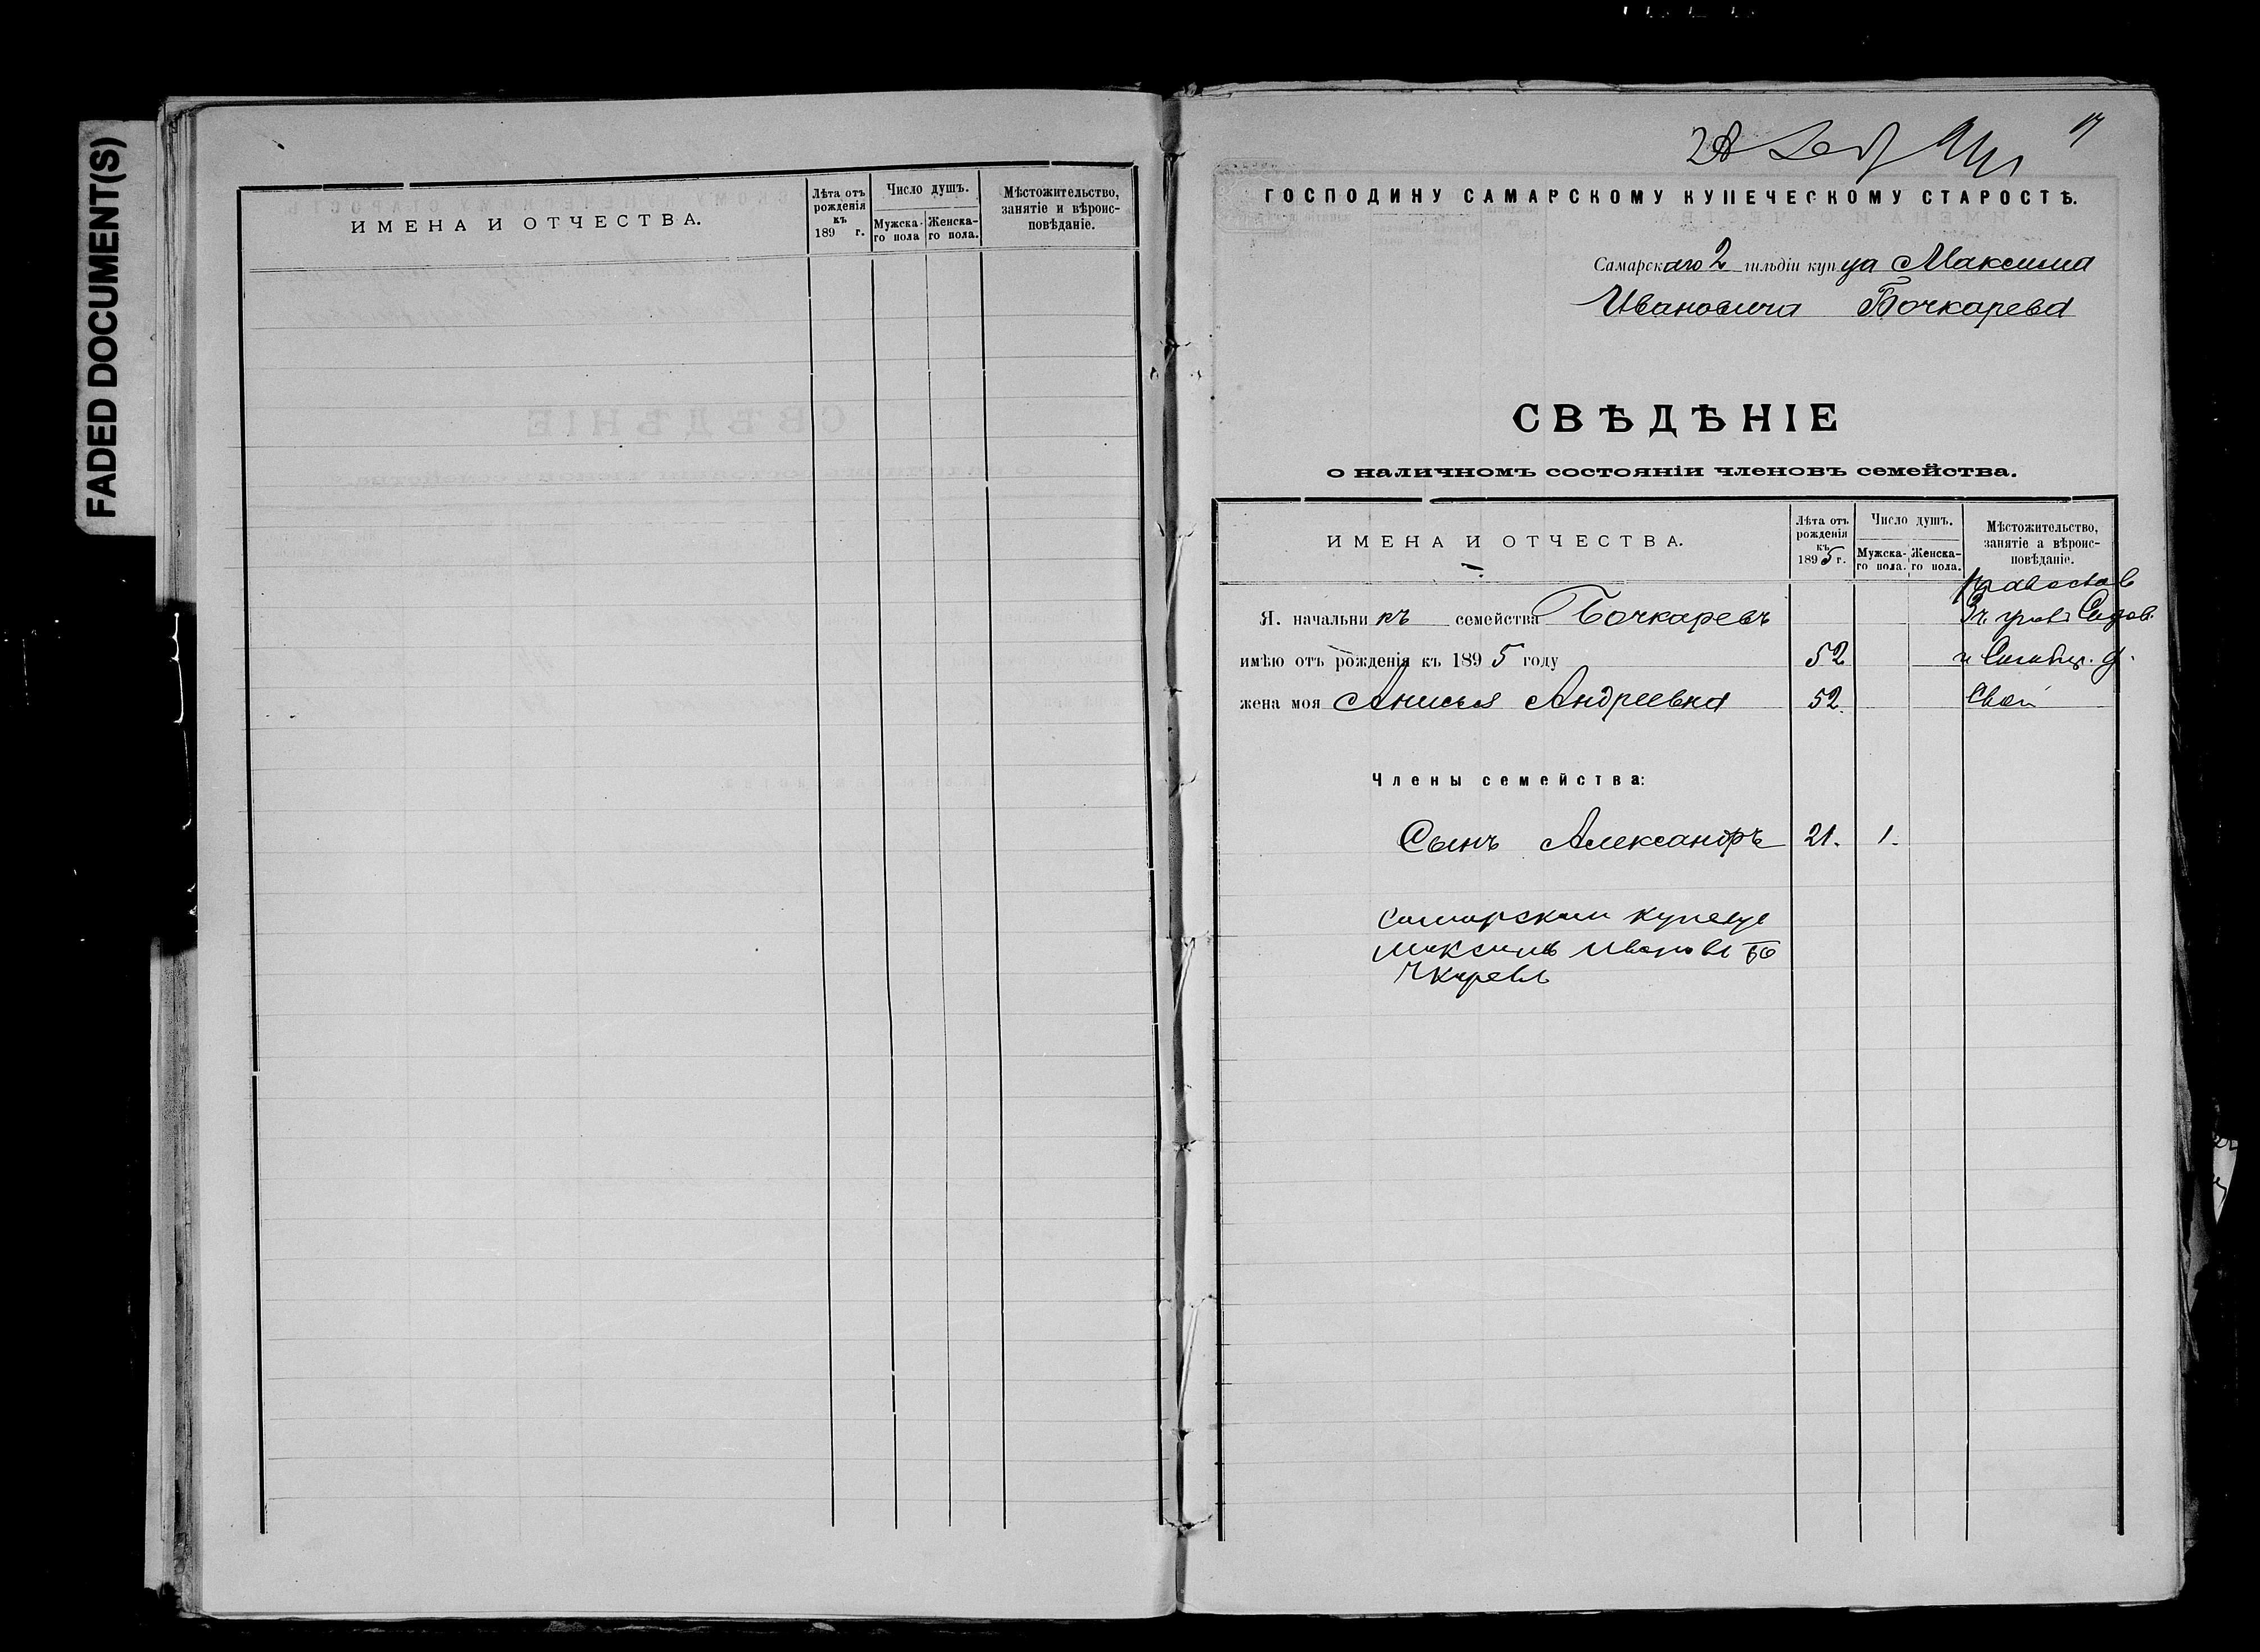 FADED DOCUMENT(S)
ИМЕНА И ОТЧЕСТВА.
Лѣта отъ рожденія къ 189 г.
Число душъ.
Мужска-го пола
Женска-го пола.
Мѣстожительство, занятіе и вѣроис-повѣданіе.
ГОСПОДИНУ САМАРСКОМУ КУПЕЧЕСКОМУ СТАРОСТѢ.
Самарскаго 2 гильдіи купца Максима
Ивановича Бочкарева
СВѢДѢНІЕ
о наличномъ состояніи членовъ семейства.
ИМЕНА И ОТЧЕСТВА.
Лѣта отъ рожденія къ 1895 г.
Число душъ.
Мужска-го пола.
Женска-го пола.
Мѣстожительство, занятіе а вѣроис-повѣданіе.
Православ
Я. начальникъ семейства Бочкаревъ 3 ч. Садов.
имѣю отъ рожденія къ 1895 году 52 и
жена моя Анисья Андреевна 52. Свой
Члены семейства:
Сынъ Александръ 21. 1.
Самарскии купецъ
Максимъ Ивановъ Бо
чкаревъ